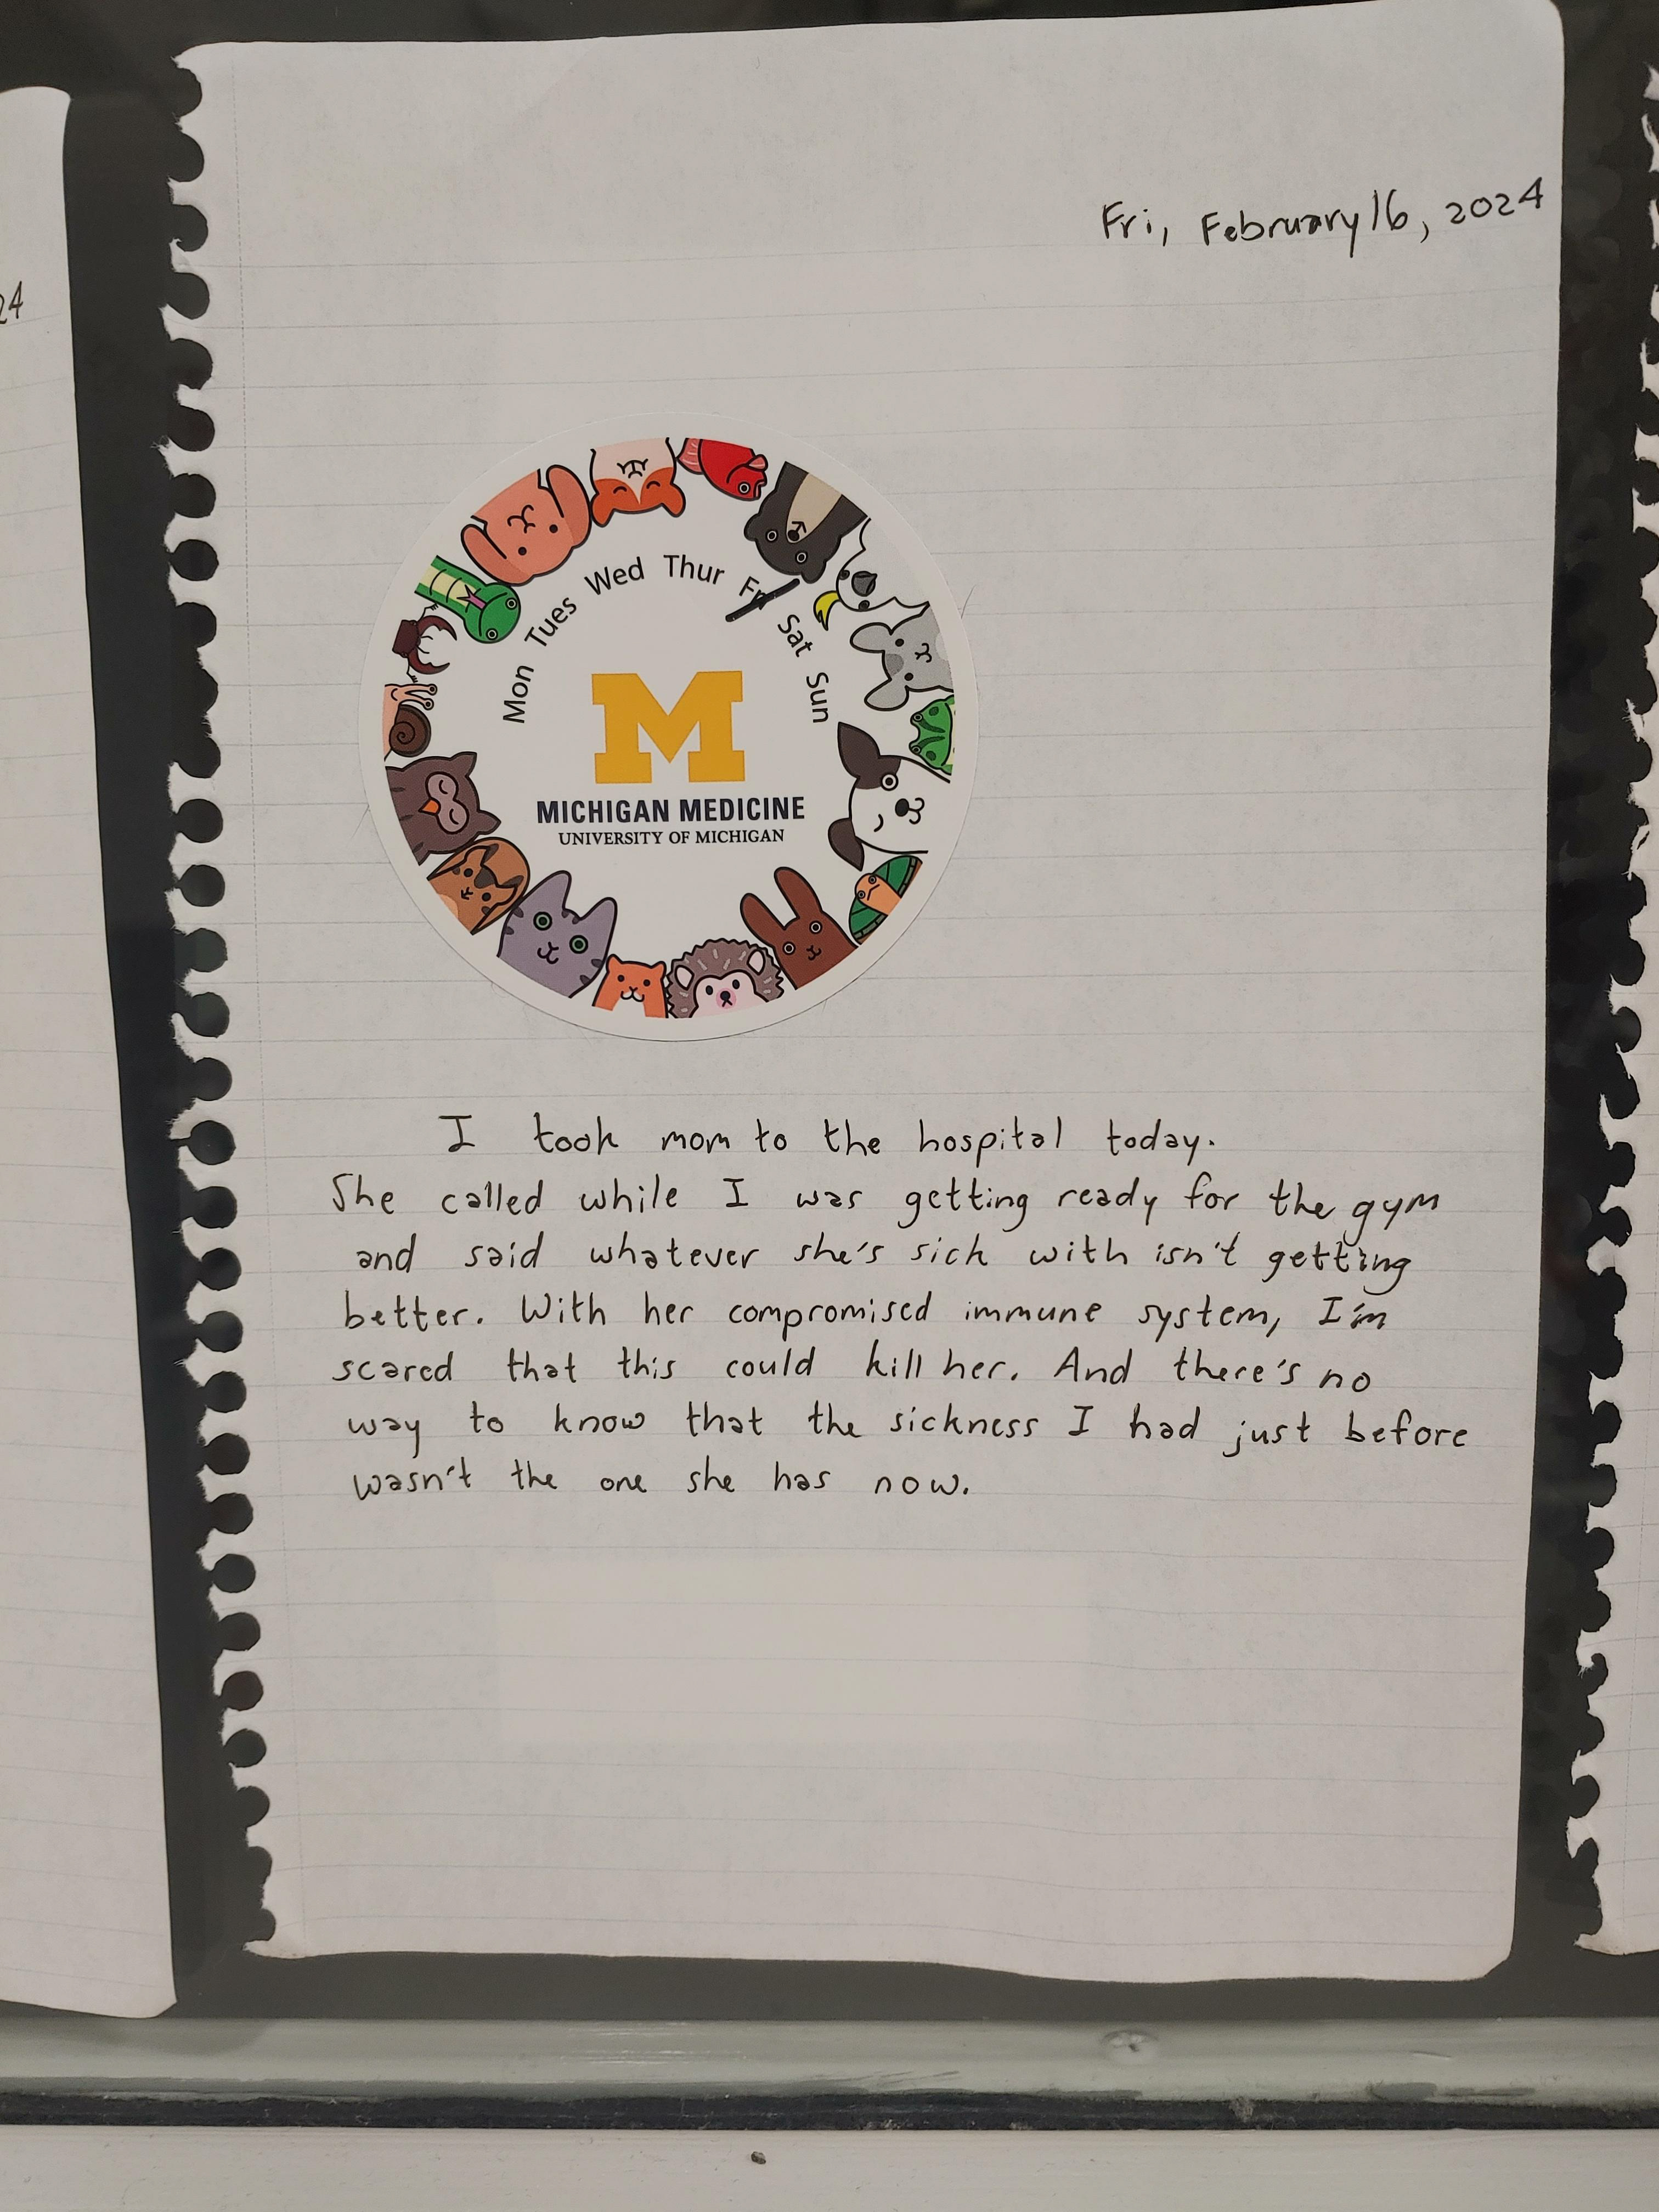 24
Fri, February 16, 2024
Mon Tues Wed Thur Fri Sat Sun
M
MICHIGAN MEDICINE
UNIVERSITY OF MICHIGAN
I took mom to the hospital today.
She called while I was getting ready for the gym
and said whatever she's sick with isn't getting
better. With her compromised immune system, I'm
scared that this could kill her. And there's no
way to know that the sickness I had just before
wasn't the one she has now.